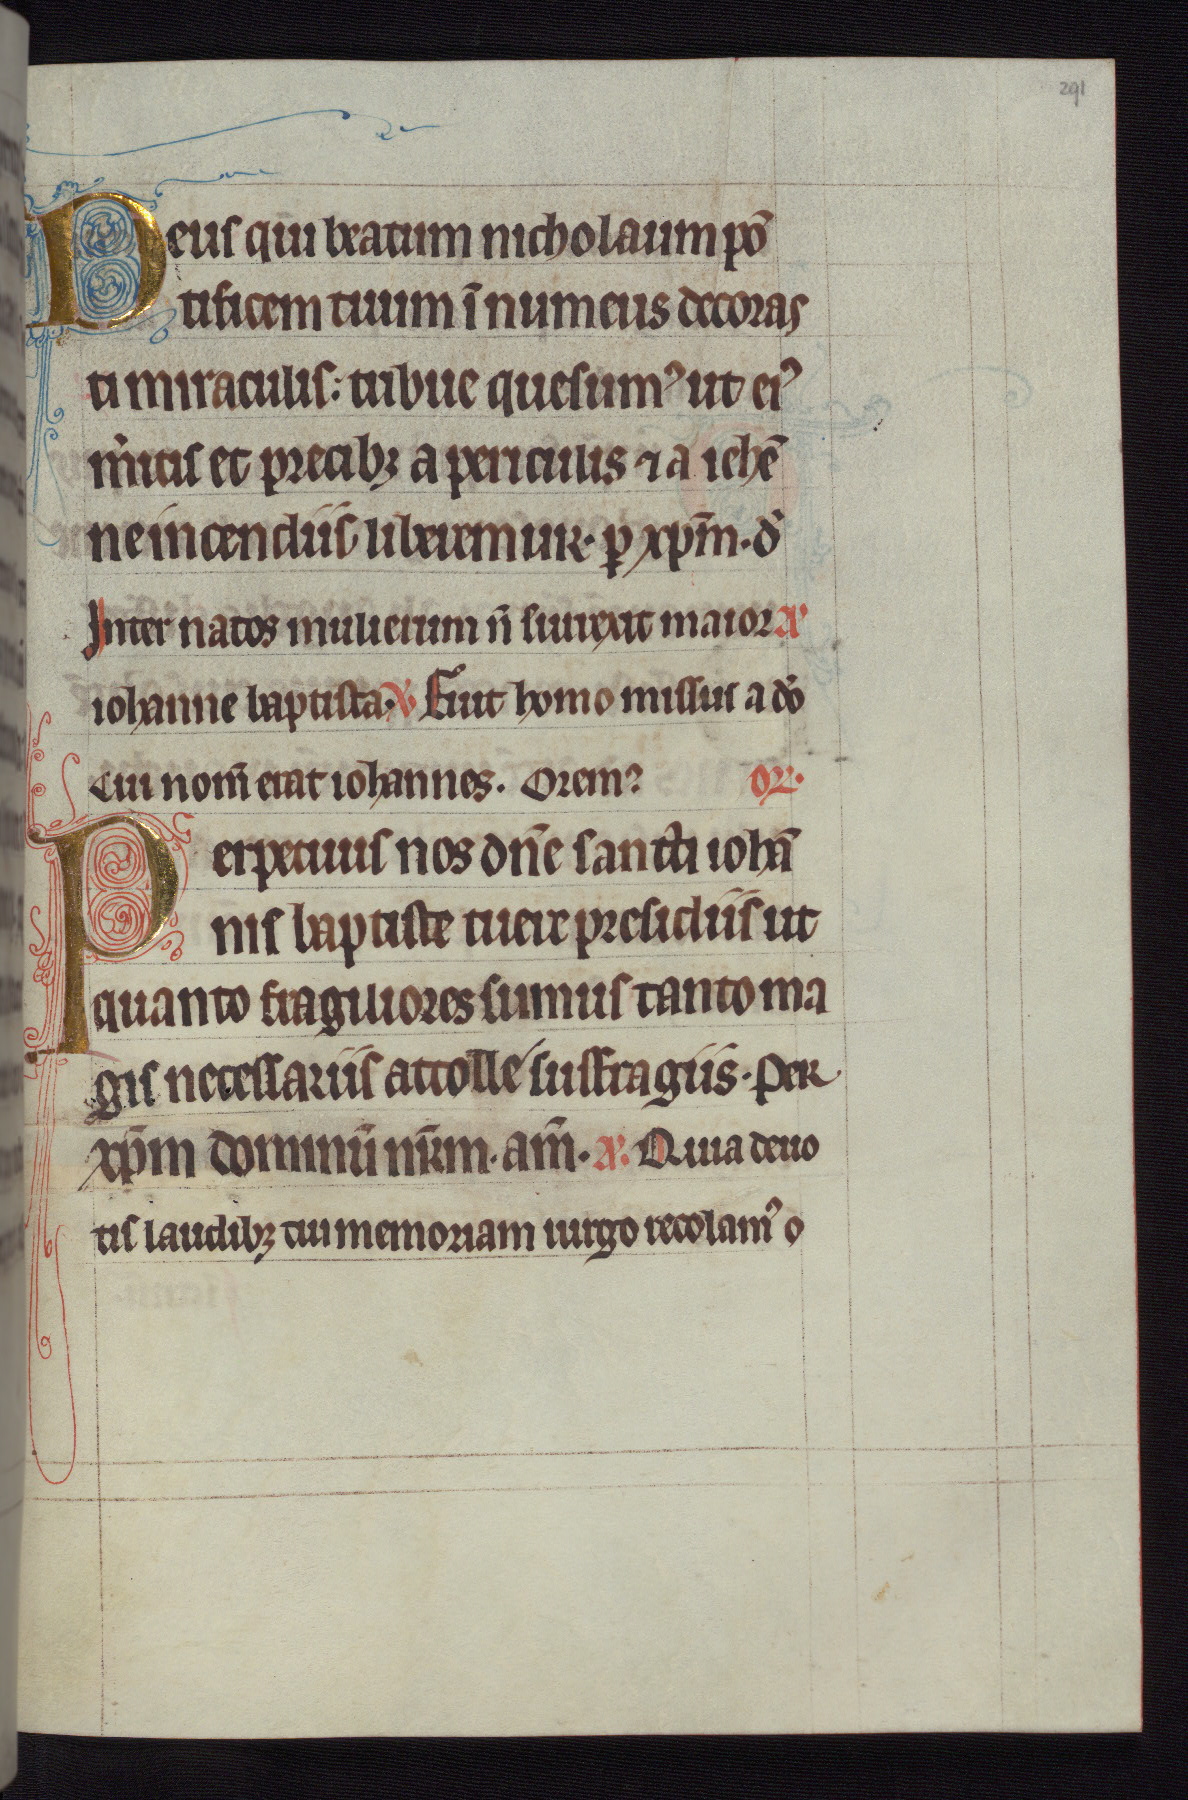 291
Deus qui beatum nicholaum po᷑
tificem tuum ī numeris decoras
ti miraculis: tribue quesumꝰ ut eiꝰ
m̓itis et precibꝫ a periculis ⁊ a iehē
ne incendiis liberemur. ꝑ xp̄m. d̓
Inter natos mulierum n̄ surrexit maior a͛
iohanne baptista. v͛. Fuit homo missus a deo
Cui nom̄ erat iohannes. Oremꝰ or.
Perpetuis nos dn̄e sancti iohā
nis baptiste tuere presidiis ut
quanto fragiliores sumus tanto ma
gis necessariis attolle suffragiis. Per
xp̄m dominū nr̄m. am̄. a͛. Quia deuo
tis laudibꝫ tui memoriam uirgo recolamꝰ o